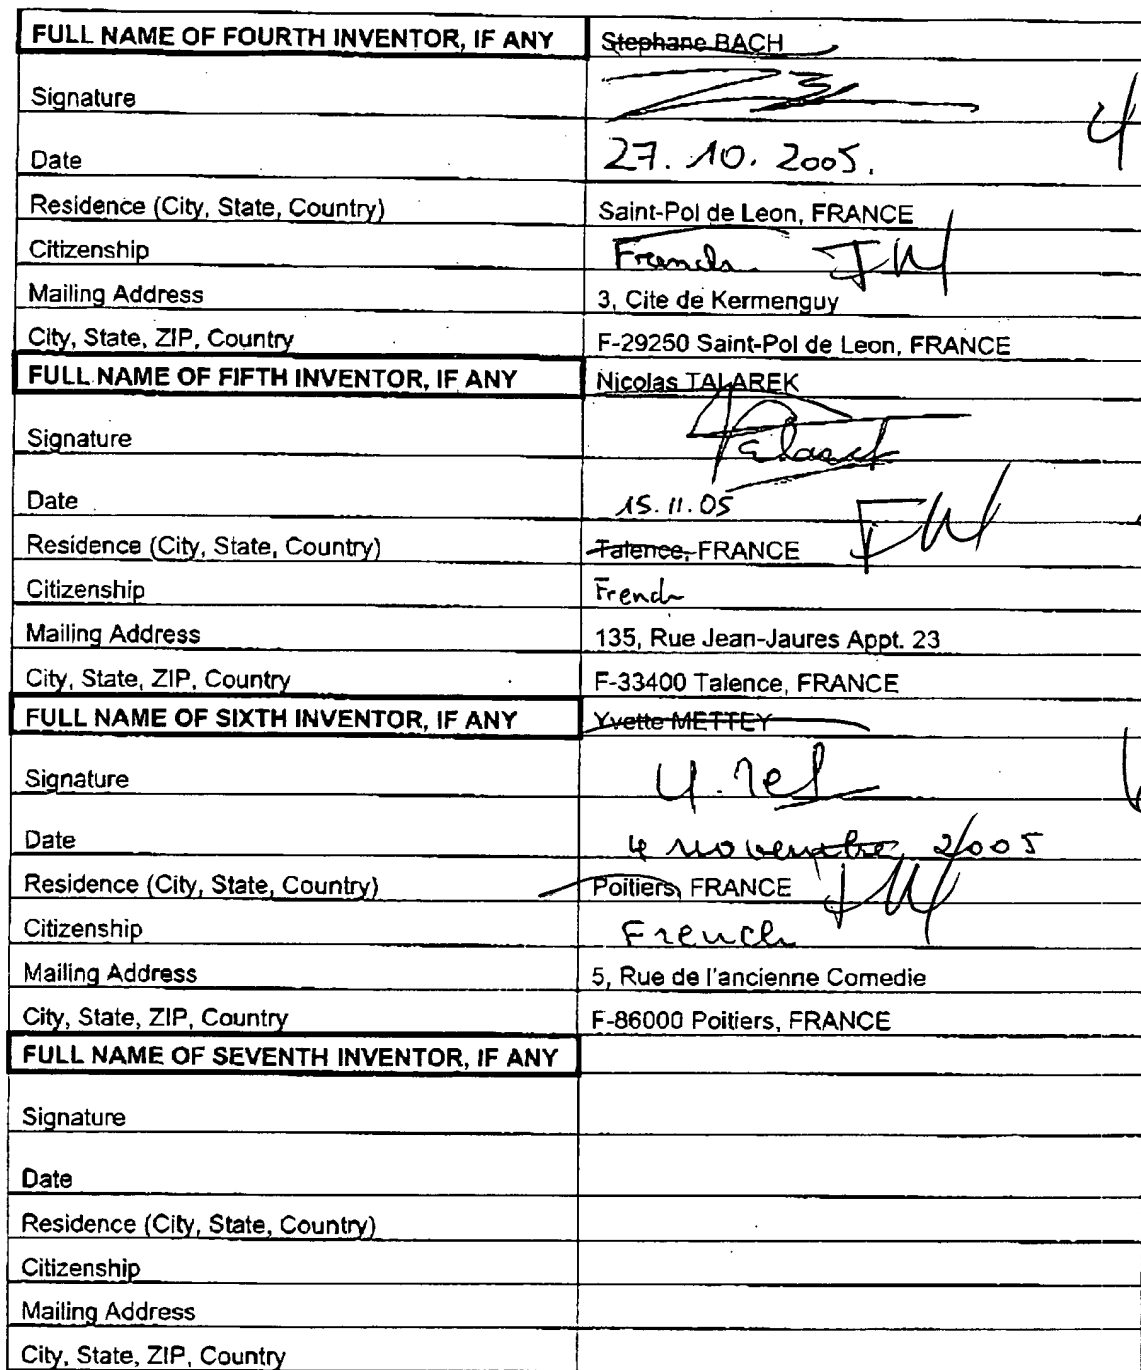 FULL NAME OF FOURTH INVENTOR, IF ANY Stephane BACH
Signature
Date 27. 10. 2005.
Residence (City, State, Country) Saint-Pol de Leon, FRANCE
Citizenship French
Mailing Address 3, Cite de Kermenguy
City, State, ZIP, Country F-29250 Saint-Pol de Leon, FRANCE
FULL NAME OF FIFTH INVENTOR, IF ANY Nicolas TALAREK
Signature
Date 15.11.05
Residence (City, State, Country) Talence, FRANCE
Citizenship French
Mailing Address 135, Rue Jean-Jaures Appt. 23
City, State, ZIP, Country F-33400 Talence, FRANCE
FULL NAME OF SIXTH INVENTOR, IF ANY Yvette METTEY
Signature
Date 4 novembre 2005
Residence (City, State, Country) Poitiers, FRANCE
Citizenship French
Mailing Address 5, Rue de l'ancienne Comedie
City, State, ZIP, Country F-86000 Poitiers, FRANCE
FULL NAME OF SEVENTH INVENTOR, IF ANY
Signature
Date
Residence (City, State, Country)
Citizenship
Mailing Address
City, State, ZIP, Country